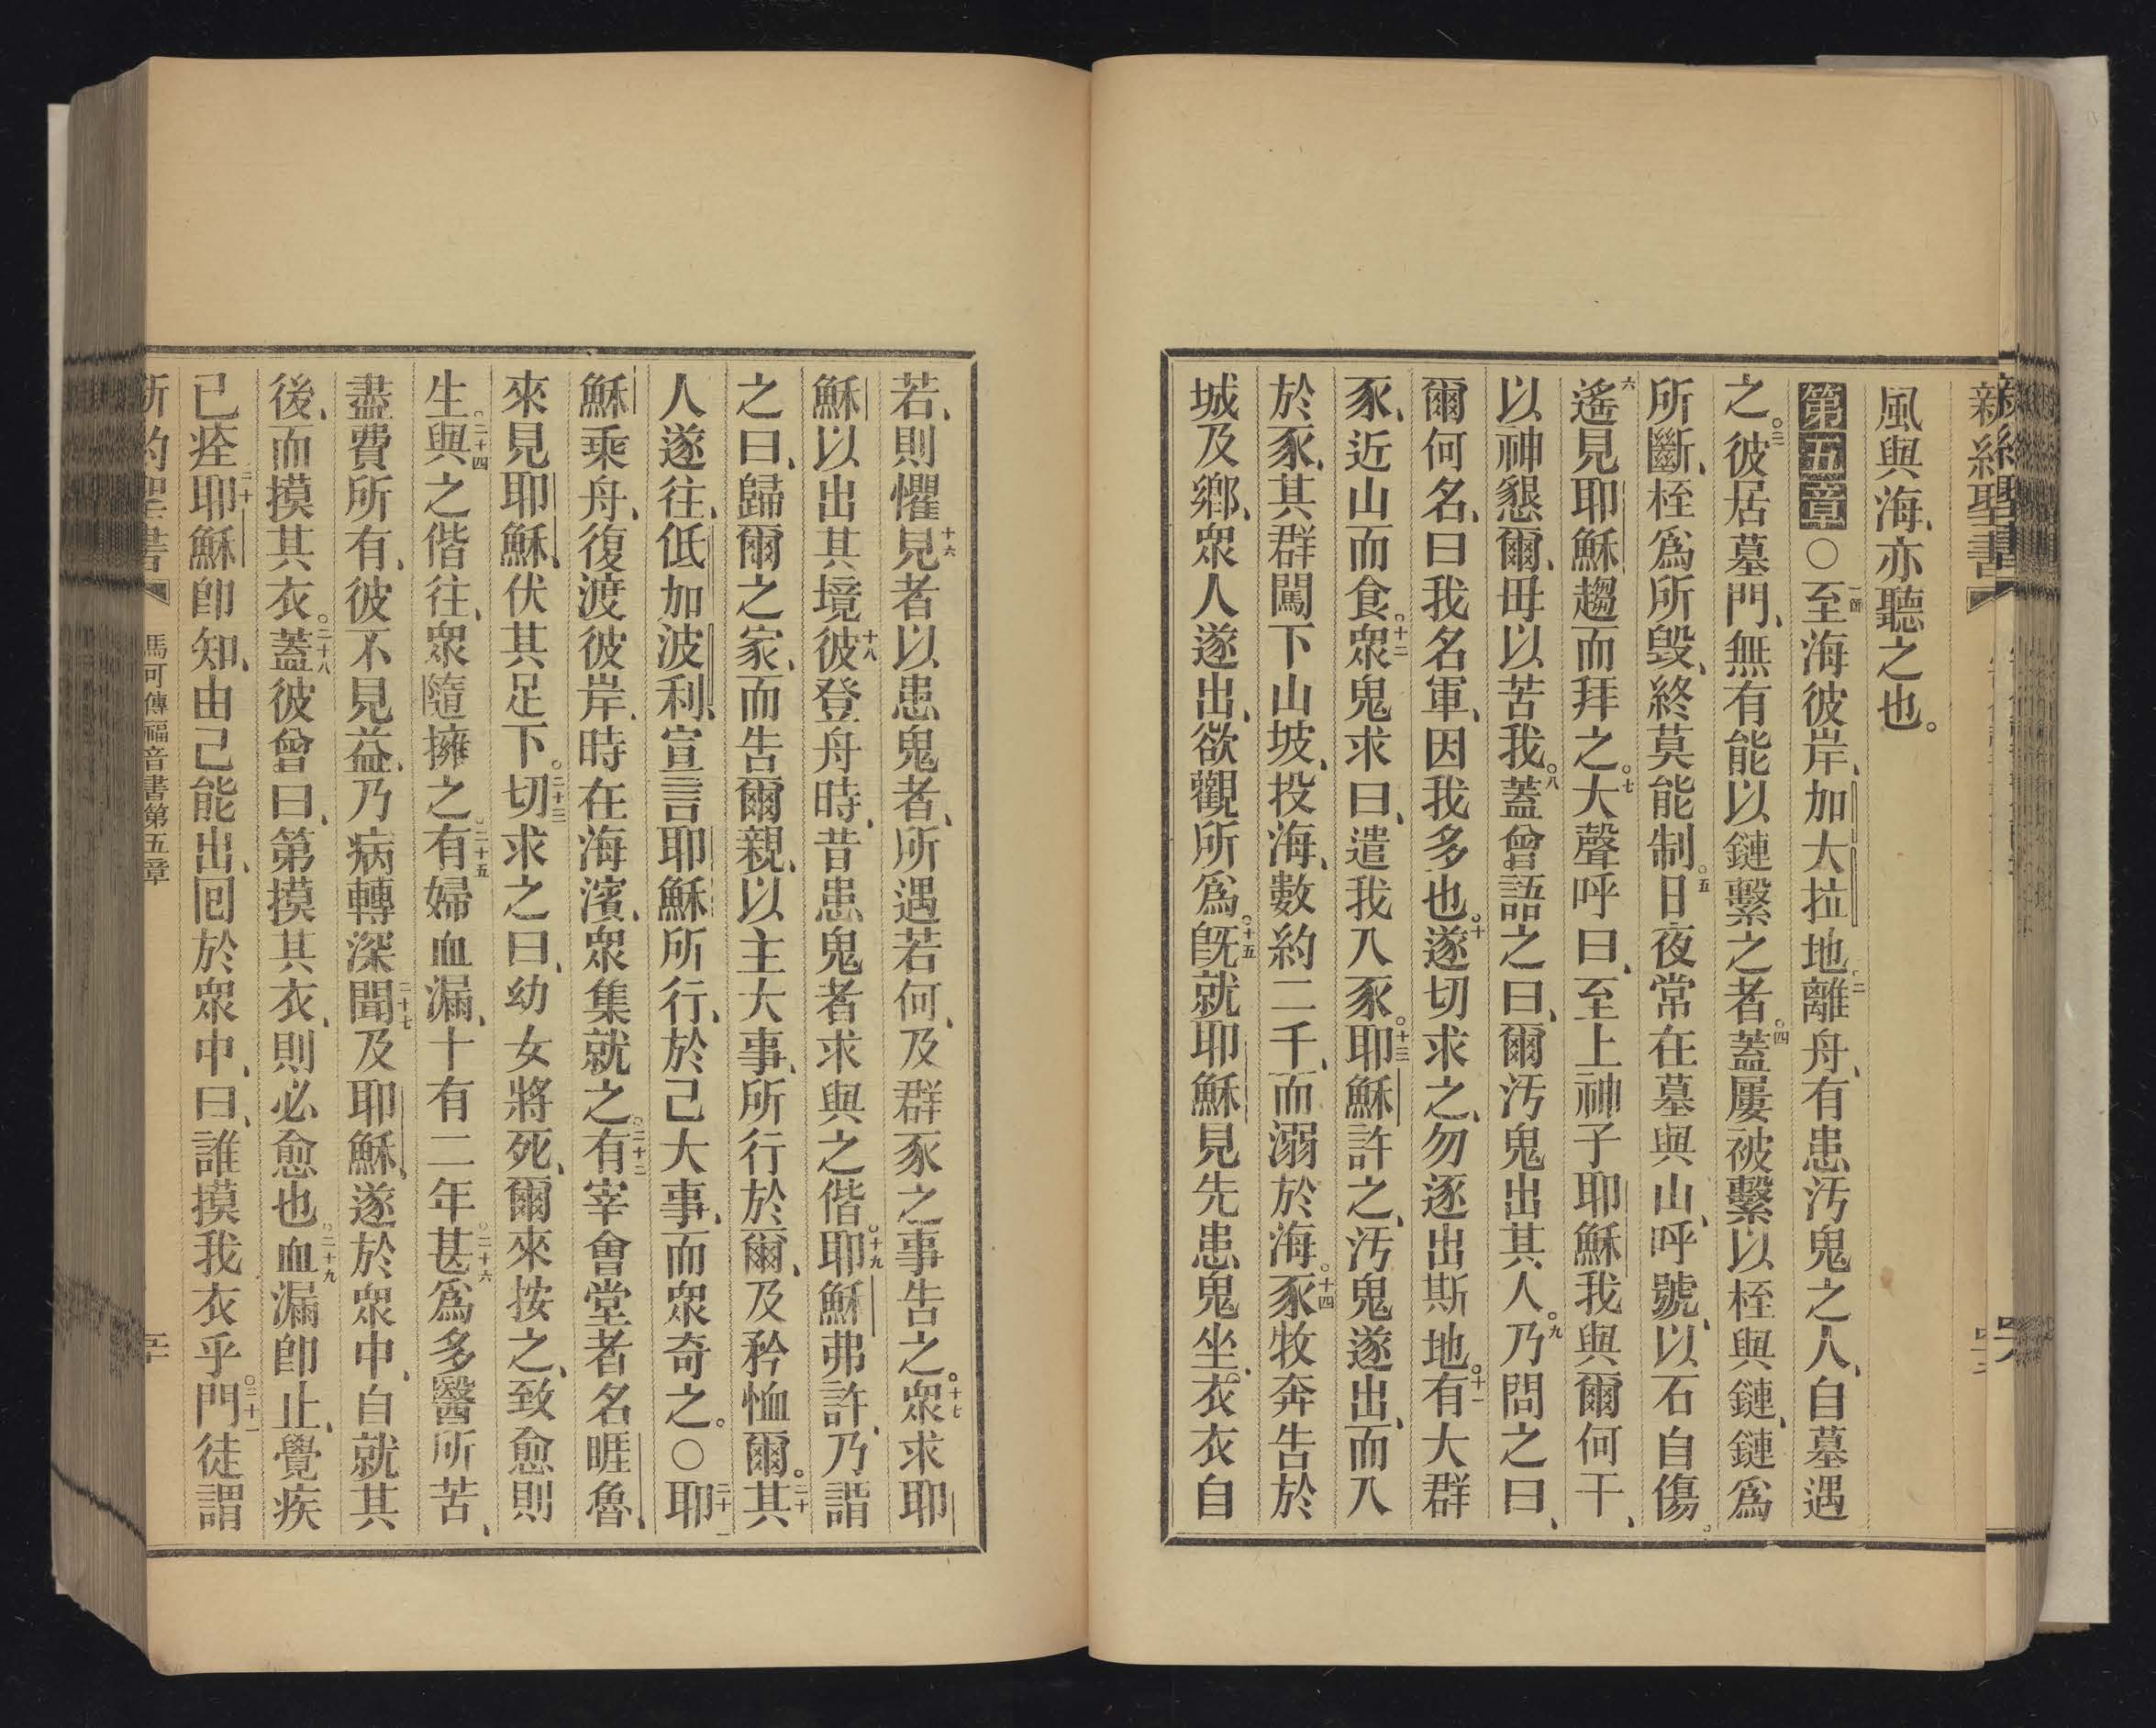 風與海、亦聽之也。
第五章○一節至海彼岸、加大拉地。二離舟、有患汚鬼之人、自墓遇
之。三彼居墓門、無有能以鏈繫之者。四蓋屢被繫以桎與鏈、鏈爲
所斷、桎爲所毀、終莫能制。五日夜常在墓與山、呼號、以石自傷。
六遙見耶穌趨而拜之。七大聲呼曰、至上神子耶穌我與爾何干、
以神懇爾、毋以苦我。八蓋曾語之曰、爾汚鬼出其人。九乃問之曰、
爾何名、曰我名軍、因我多也。十遂切求之、勿逐出斯地。十一有大群
豕、近山而食。十二眾鬼求曰、遣我入豕。十三耶穌許之、汚鬼遂出、而入
於豕、其群闖下山坡、投海、數約二千、而溺於海。十四豕牧奔告於
城及鄉、眾人遂出、欲觀所爲。十五旣就耶穌見先患鬼坐、衣衣自
若、則懼十六見者以患鬼者、所遇若何、及群豕之事告之。十七眾求耶
穌以出其境十八彼登舟時、昔患鬼者求與之偕。十九耶穌弗許、乃謂
之曰、歸爾之家、而告爾親、以主大事、所行於爾、及矜恤爾。二十其
人遂往、低加波利、宣言耶穌所行、於己大事、而眾奇之。○二十一耶
穌乘舟、復渡彼岸、時在海濱、眾集就之。二十二有宰會堂者名睚魯、
來見耶穌、伏其足下。二十三切求之曰、幼女將死、爾來按之、致愈則
生。二十四與之偕往、眾隨擁之。二十五有婦血漏、十有二年。二十六甚爲多醫所苦、
盡費所有、彼不見益、乃病轉深二十七聞及耶穌、遂於眾中、自就其
後、而摸其衣。二十八蓋彼曾曰、第摸其衣、則必愈也。二十九血漏卽止、覺疾
已痊三十耶穌卽知、由己能出、囘於眾中、曰、誰摸我衣乎。三十一門徒謂
新約聖書 馬可傳福音書第五章